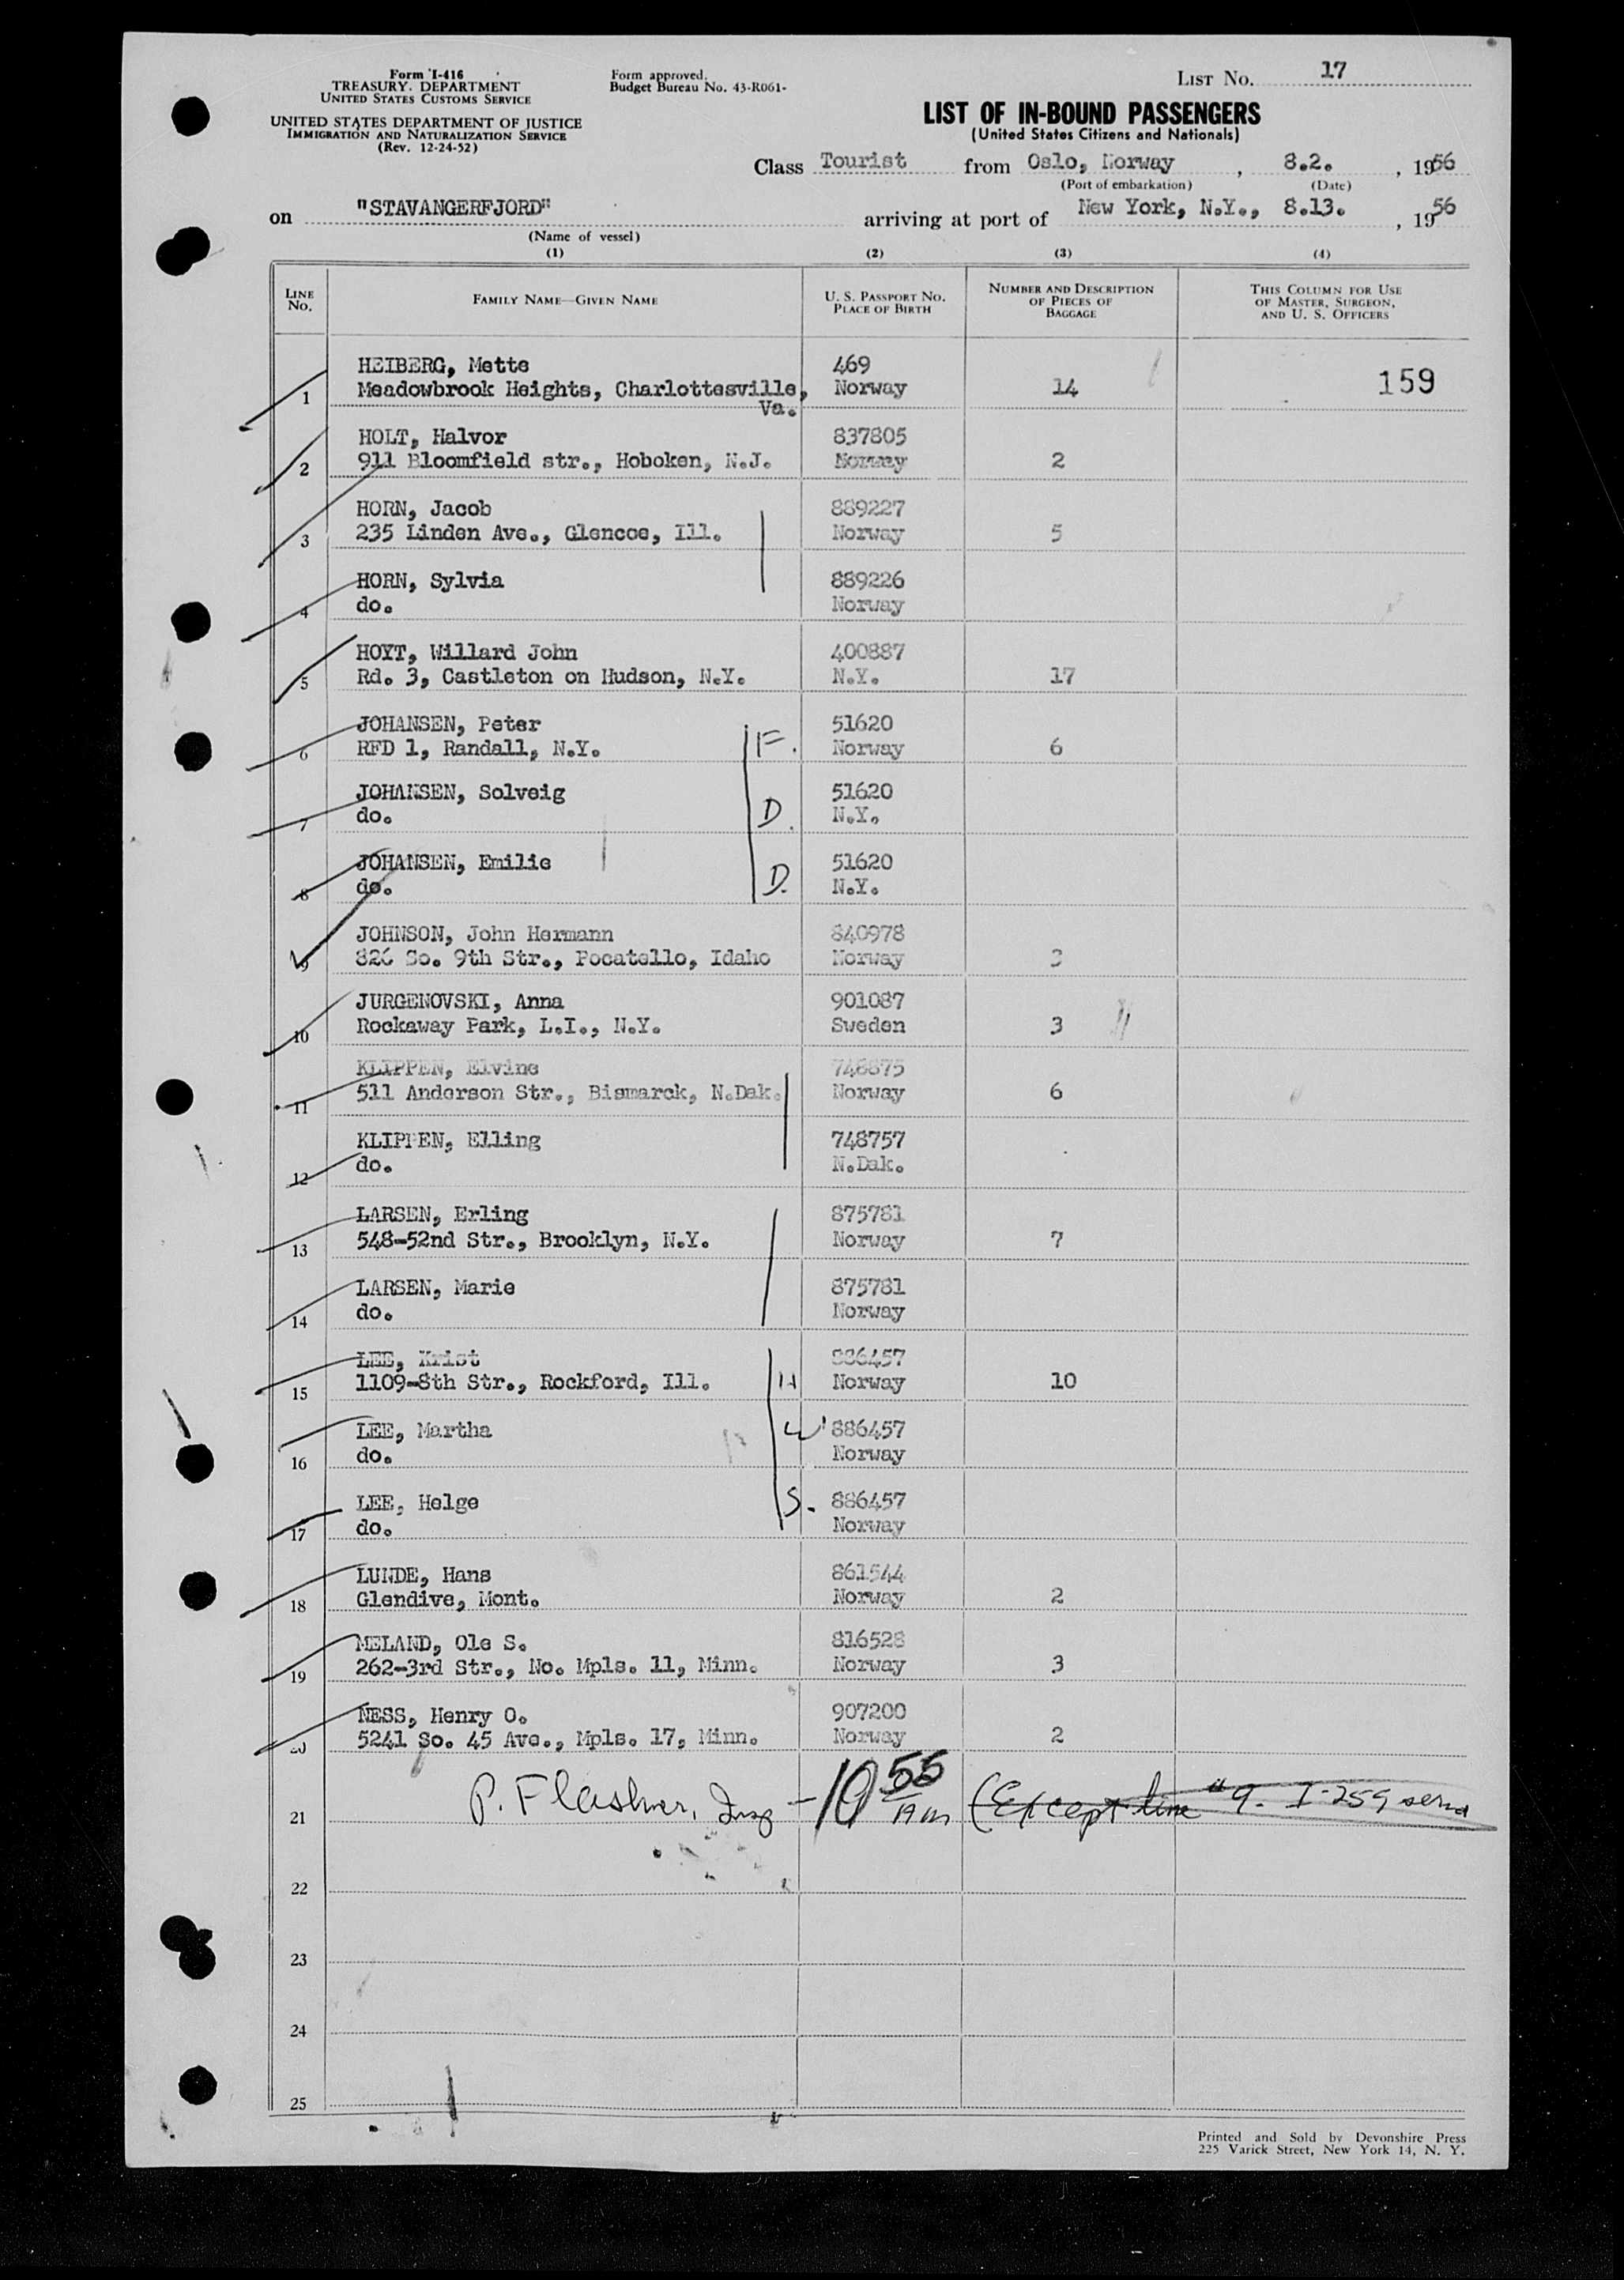 Form I-416
TREASURY DEPARTMENT
UNITED STATES CUSTOMS SERVICE
UNITED STATES DEPARTMENT OF JUSTICE
IMMIGRATION AND NATURALIZATION SERVICE
(Rev. 12-24-52)
Form approved.
Budget Bureau No. 43-R061-
LIST No. 17
LIST OF IN-BOUND PASSENGERS
(United States Citizens and Nationals)
Class Tourist from Oslo, Norway, 8.2., 1956
(Port of embarkation) (Date)
on "STAVANGERFJORD" arriving at port of New York, N.Y., 8.13., 1956
(Name of vessel)
(1) (2) (3) (4)
LINE No. FAMILY NAME—GIVEN NAME U. S. PASSPORT NO. PLACE OF BIRTH NUMBER AND DESCRIPTION OF PIECES OF BAGGAGE THIS COLUMN FOR USE OF MASTER, SURGEON, AND U. S. OFFICERS
HEIBERG, Mette 469
1 Meadowbrook Heights, Charlottesville, Va. Norway 14 159
HOLT, Halvor 837805
2 911 Bloomfield str., Hoboken, N.J. Norway 2
HORN, Jacob 889227
3 235 Linden Ave., Glencoe, Ill. Norway 5
HORN, Sylvia 889226
4 do. Norway
HOYT, Willard John 400887
5 Rd. 3, Castleton on Hudson, N.Y. N.Y. 17
JOHANSEN, Peter 51620
6 RFD 1, Randall, N.Y. F. Norway 6
JOHANSEN, Solveig 51620
7 do. D. N.Y.
JOHANSEN, Emilie 51620
8 do. D. N.Y.
JOHNSON, John Hermann 840978
9 826 So. 9th Str., Pocatello, Idaho Norway 3
JURGENOVSKI, Anna 901087
10 Rockaway Park, L.I., N.Y. Sweden 3
KLIPPEN, Elvine 748875
11 511 Anderson Str., Bismarck, N.Dak. Norway 6
KLIPPEN, Elling 748757
12 do. N.Dak.
LARSEN, Erling 875781
13 548-52nd Str., Brooklyn, N.Y. Norway 7
LARSEN, Marie 875781
14 do. Norway
LEE, Krist 886457
15 1109-8th Str., Rockford, Ill. H Norway 10
LEE, Martha W 886457
16 do. Norway
LEE, Helge S. 886457
17 do. Norway
LUNDE, Hans 861544
18 Glendive, Mont. Norway 2
MELAND, Ole S. 816528
19 262-3rd Str., No. Mpls. 11, Minn. Norway 3
NESS, Henry O. 907200
20 5241 So. 45 Ave., Mpls. 17, Minn. Norway 2
21 P. Flashner, Insp - 10 55 AM (Except line #9. I-259 serv
22
23
24
25
Printed and Sold by Devonshire Press
225 Varick Street, New York 14, N. Y.